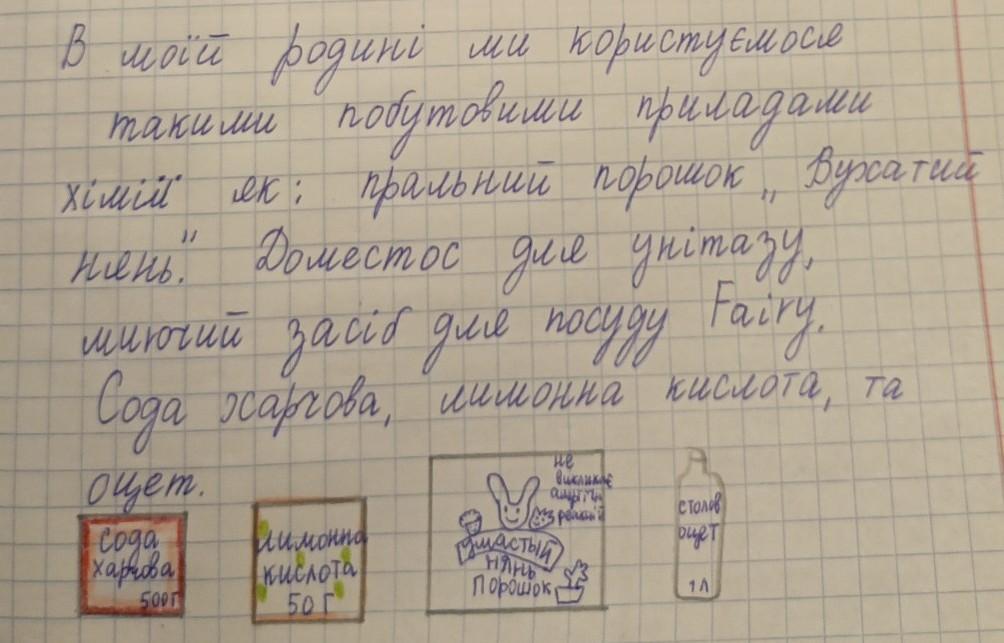 В моїй родині ми користуємося
такими побутовими приладами
хімії як: пральний порошок „Вухатий
нянь." Доместос для унітазу,
миючий засіб для посуду Fairy.
Сода харчова, лимонна кислота, та
оцет.
сода
харчова
500г
лимонна
кислота
50 Г
не
викликає
реакції
ушастый
нянь
порошок
столов
оцет
1л